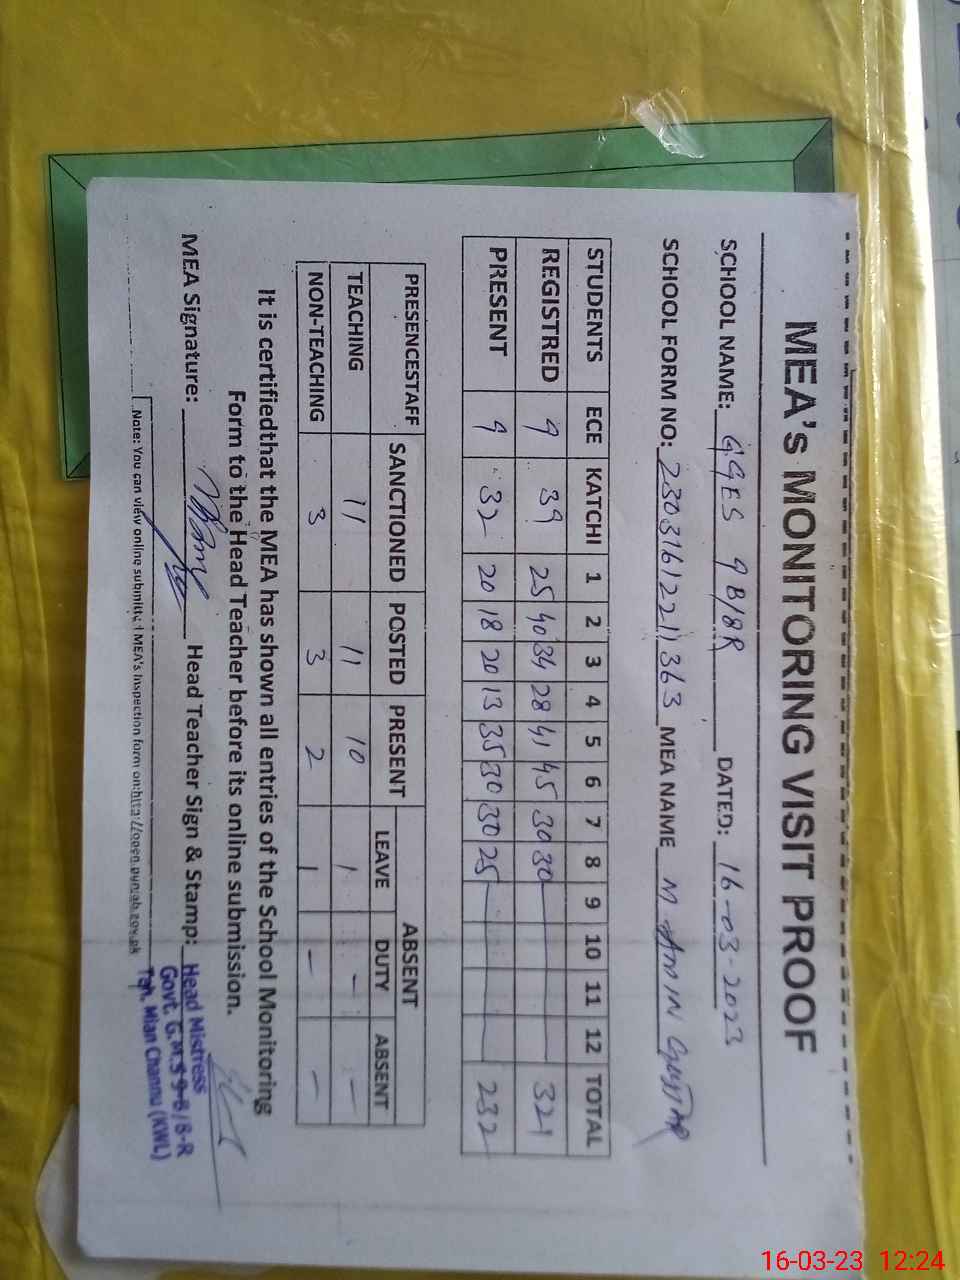 MEA's MONITORING VISIT PROOF
SCHOOL NAME: GGES 9B/8R DATED: 16-03-2023
SCHOOL FORM NO: 23031612211363 MEA NAME M AMIN GUJJAR
STUDENTS ECE KATCHI 1 2 3 4 5 6 7 8 9 10 11 12 TOTAL
REGISTRED 9 39 25 40 34 28 41 45 30 30 321
PRESENT 9 32 20 18 20 13 35 30 30 25 232
PRESENCESTAFF SANCTIONED POSTED PRESENT ABSENT
LEAVE DUTY ABSENT
TEACHING 11 11 10 1 - -
NON-TEACHING 3 3 2 1 - -
It is certifiedthat the MEA has shown all entries of the School Monitoring
Form to the Head Teacher before its online submission.
MEA Signature: Head Teacher Sign & Stamp:
Head Mistress
Govt. G.M.S 9-B/8-R
Teh. Mian Channu (KWL)
Note: You can view online submitted MEA's Inspection form on:http://open.punjab.gov.pk
16-03-23 12:24